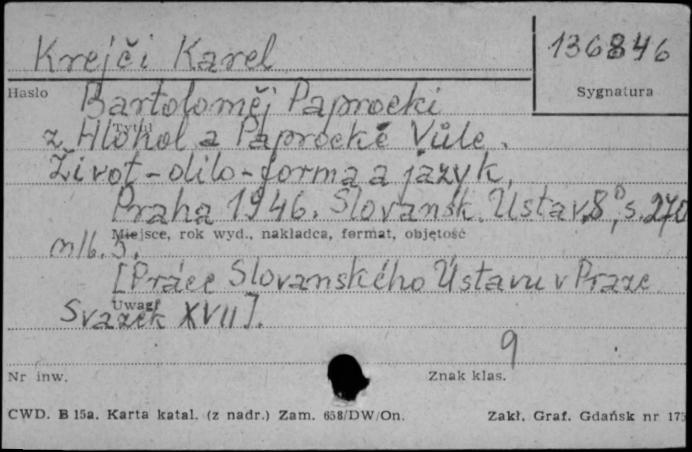 Krejčí Karel
136846
Hasło
Sygnatura
Bartoloměj Paprocki
Tytuł
z Hlohol a Paprocké Vůle.
Život-dílo-forma a jazyk.
Praha 1946. Slovansk. Ústav, 8°, s. 270
Miejsce, rok wyd., nakładca, format, objętość
nlb. 5.
[Práce Slovanského Ústavu v Praze
Uwagi
Svazek XVII].
9
Nr inw.
Znak klas.
CWD. B 15a. Karta katal. (z nadr.) Zam. 658/DW/On.
Zakł. Graf. Gdańsk nr 175